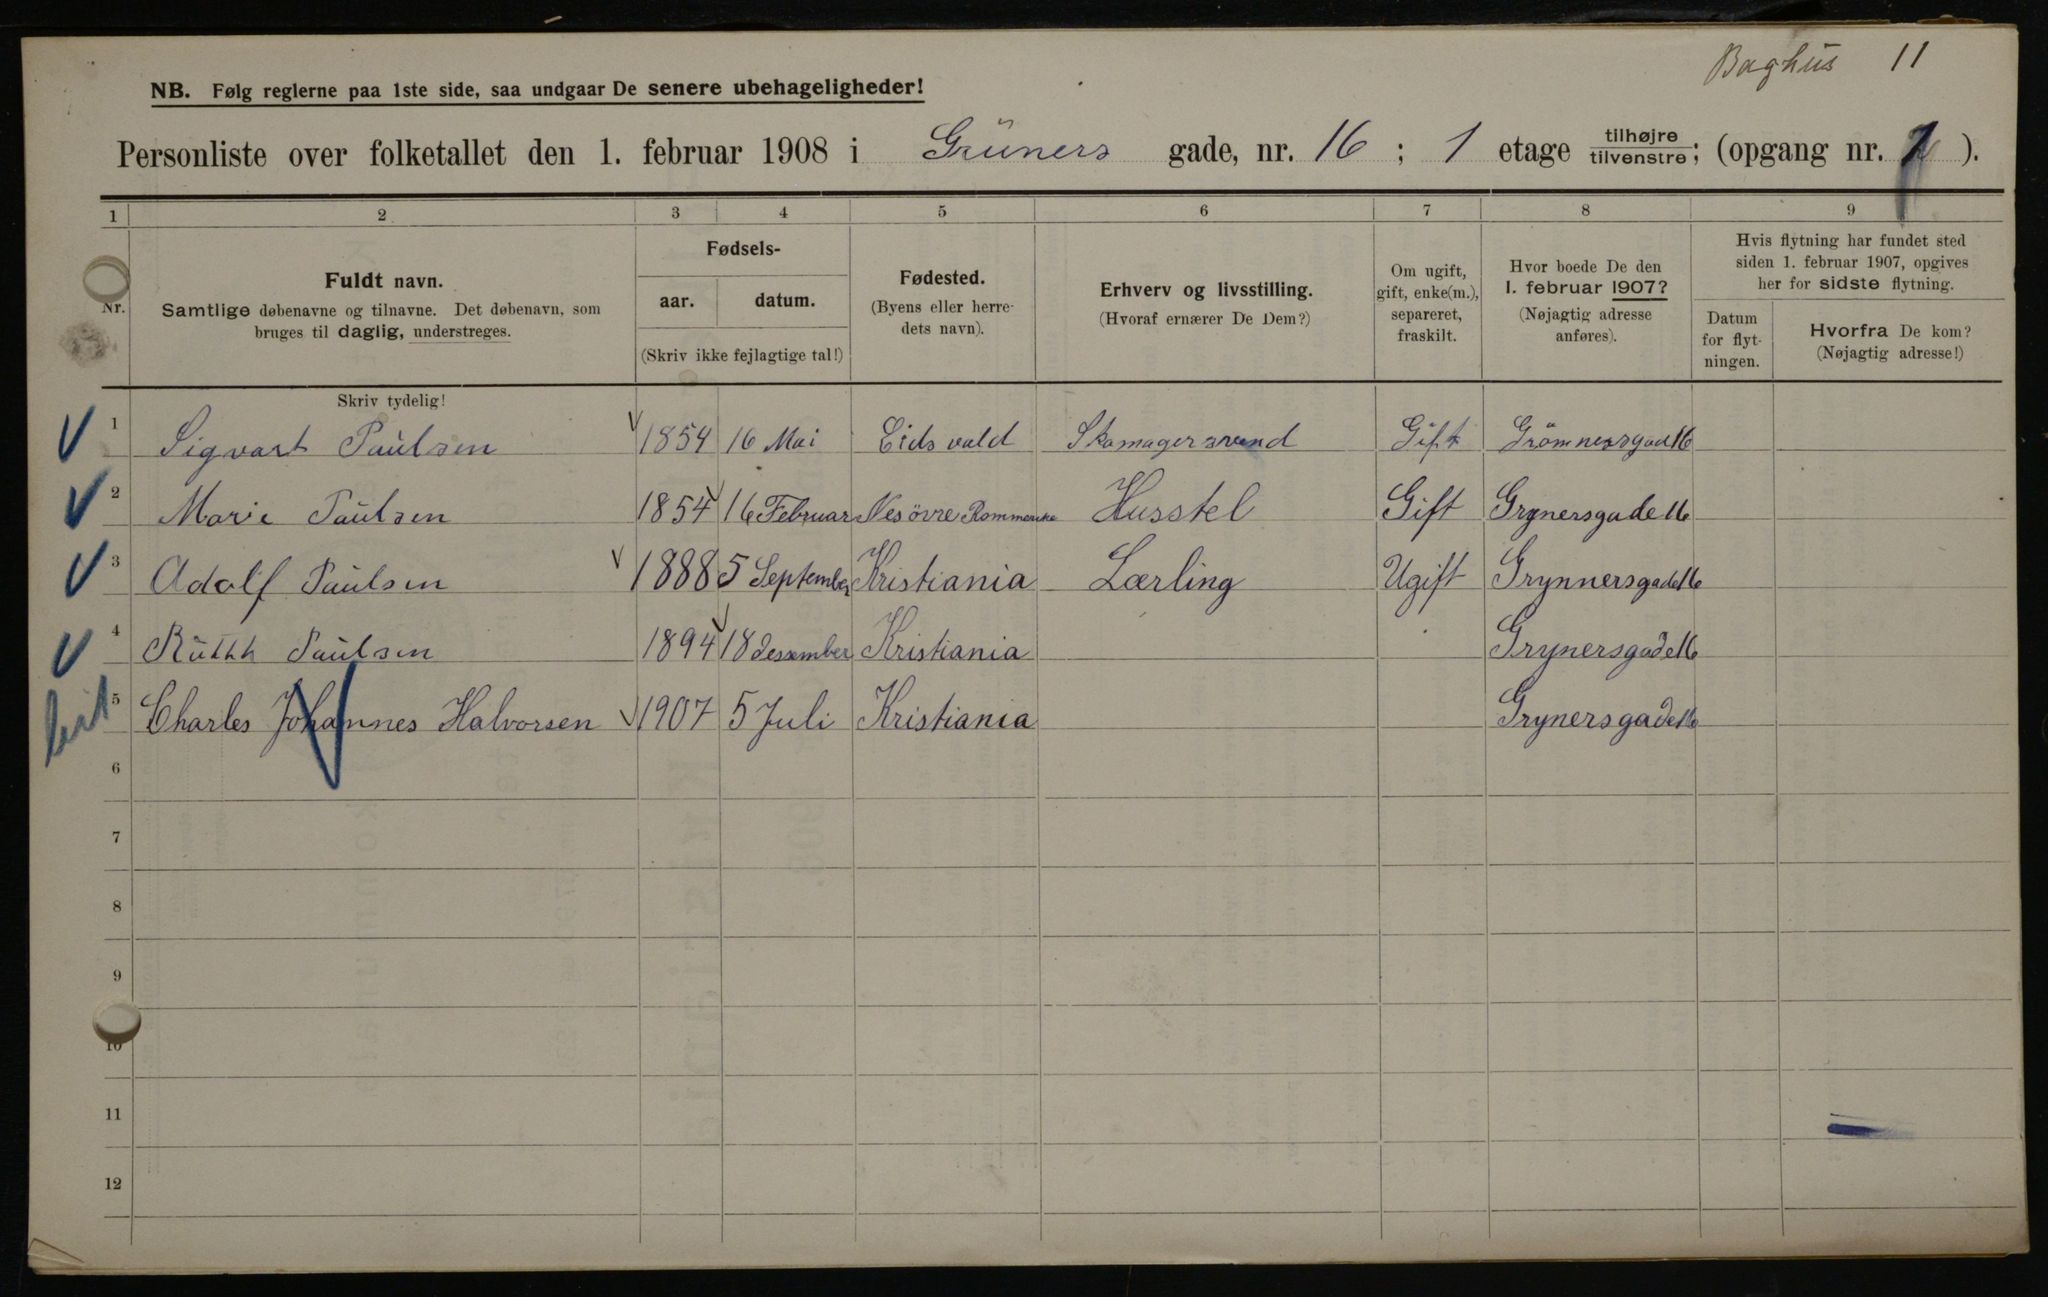 Baghus 11
NB. Følg reglerne paa 1ste side, saa undgaar De senere ubehageligheder!
Personliste over folketallet den 1. februar 1908 i Grüners gade, nr. 16 ; 1 etage tilhøjre/tilvenstre; (opgang nr. ).
1 2 3 4 5 6 7 8 9
Nr.
Fuldt navn.
Samtlige døbenavne og tilnavne. Det døbenavn, som
bruges til daglig, understreges.
Skriv tydelig!
Fødsels-
aar. datum.
(Skriv ikke fejlagtige tal!)
Fødested.
(Byens eller herre-
dets navn).
Erhverv og livsstilling.
(Hvoraf ernærer De Dem?)
Om ugift,
gift, enke(m.),
separeret,
fraskilt.
Hvor boede De den
1. februar 1907?
(Nøjagtig adresse
anføres).
Hvis flytning har fundet sted
siden 1. februar 1907, opgives
her for sidste flytning.
Datum
for flyt-
ningen.
Hvorfra De kom?
(Nøjagtig adresse!)
1 Sigvart Paulsen 1854 16 Mai Eidsvold Skomagersvend Gift Grömnersgad 16
2 Marie Paulsen 1854 16 Februar Nes övre Rommerike Husstel Gift Grynersgade 16
3 Adolf Paulsen 1888 5 September Kristiania Lærling Ugift Grynnersgade 16
4 Ruthh Paulsen 1894 18 desember Kristiania Grynersgade 16
5 Charles Johannes Halvorsen 1907 5 Juli Kristiania Grynersgade 16
6
7
8
9
10
11
12